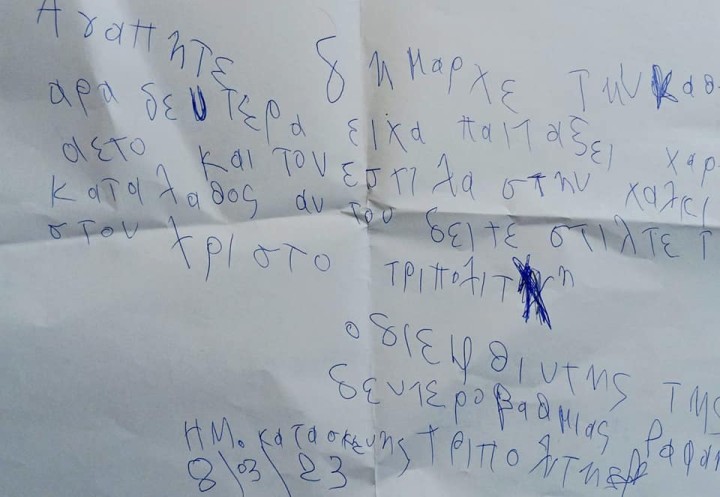 Αγαπητε δημαρχε την καθ
αρα δευτερα ειχα παιταξει χαρ
αετο και τον εστιλα στην χαλκι
κατα λαθος αν τον δειτε στιλτε τ
στον χριστο τριπολιτη
ο διεφθιντης της
δευτεροβαθμιας ραφαη
ΗΜ. κατασκευης τριπολιτης
8/03/23